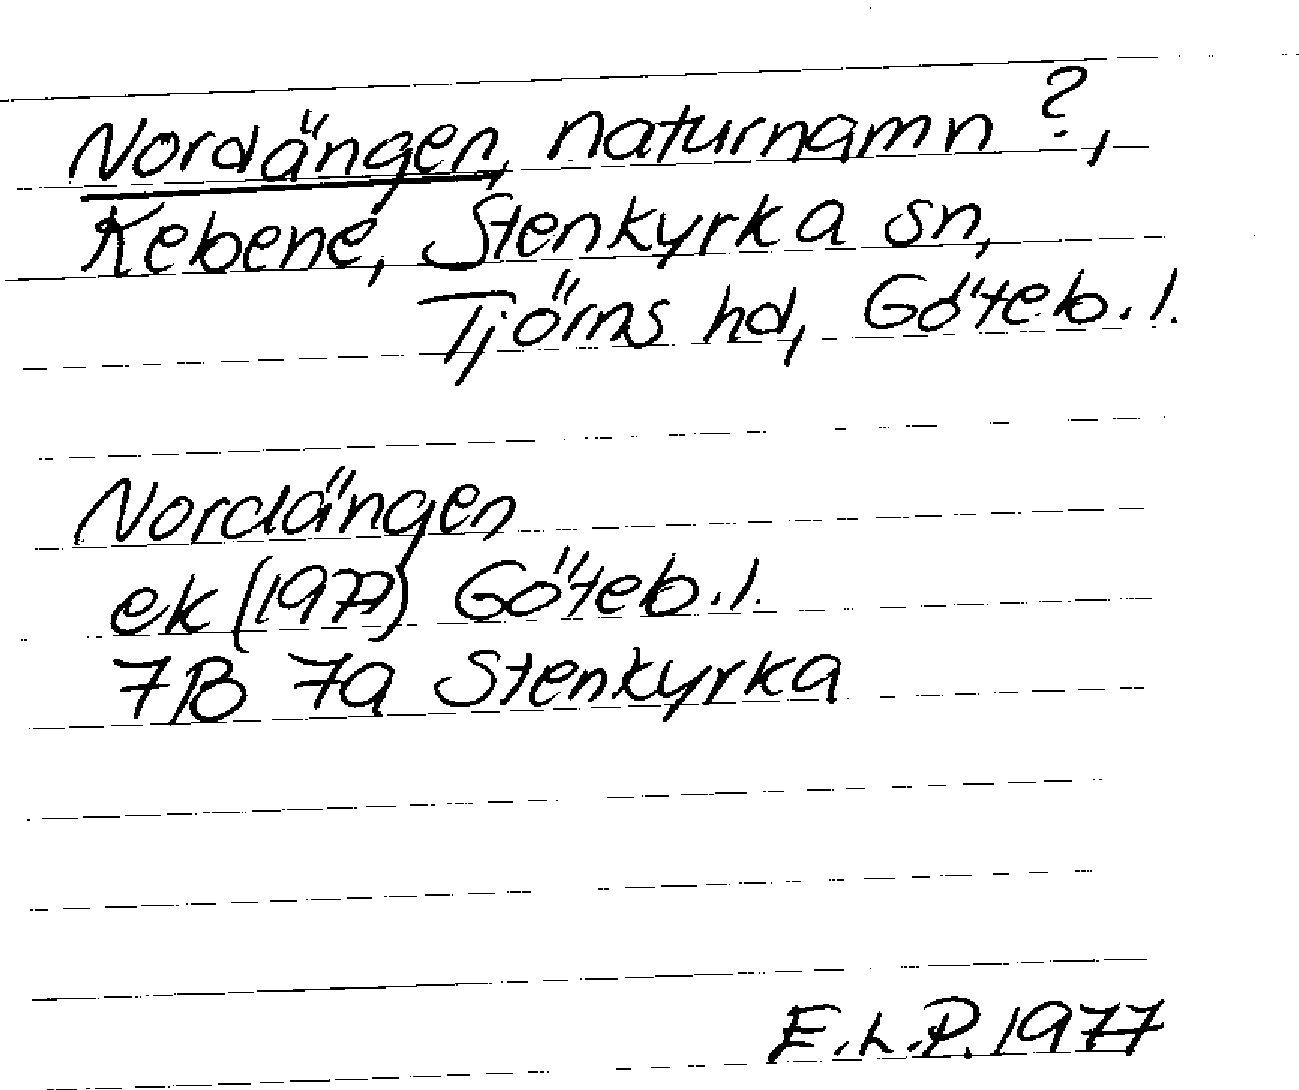 Nordängen, naturnamn?,
Kebene, Stenkyrka sn,
Tjörns hd, Göteb. l.
Nordängen
ek (1977) Göteb. l.
7B 7a Stenkyrka
E.L.P. 1977